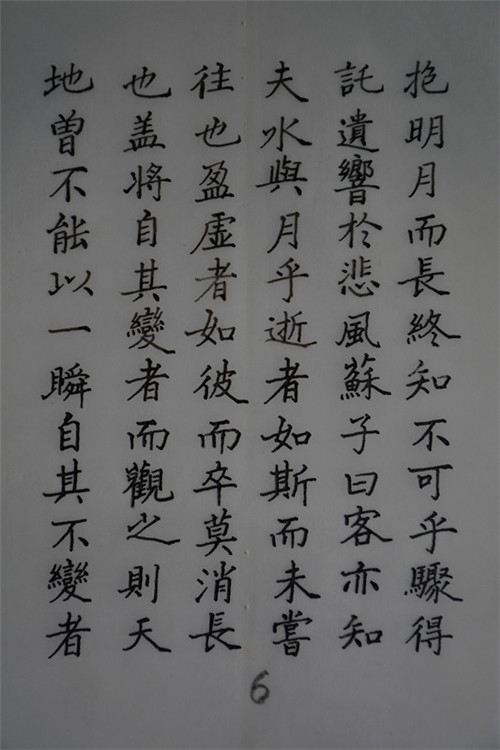 抱明月而長終知不可乎驟得
託遺響於悲風蘇子曰客亦知
夫水與月乎逝者如斯而未嘗
往也盈虛者如彼而卒莫消長
也盖將自其變者而觀之則天
地曾不能以一瞬自其不變者
6